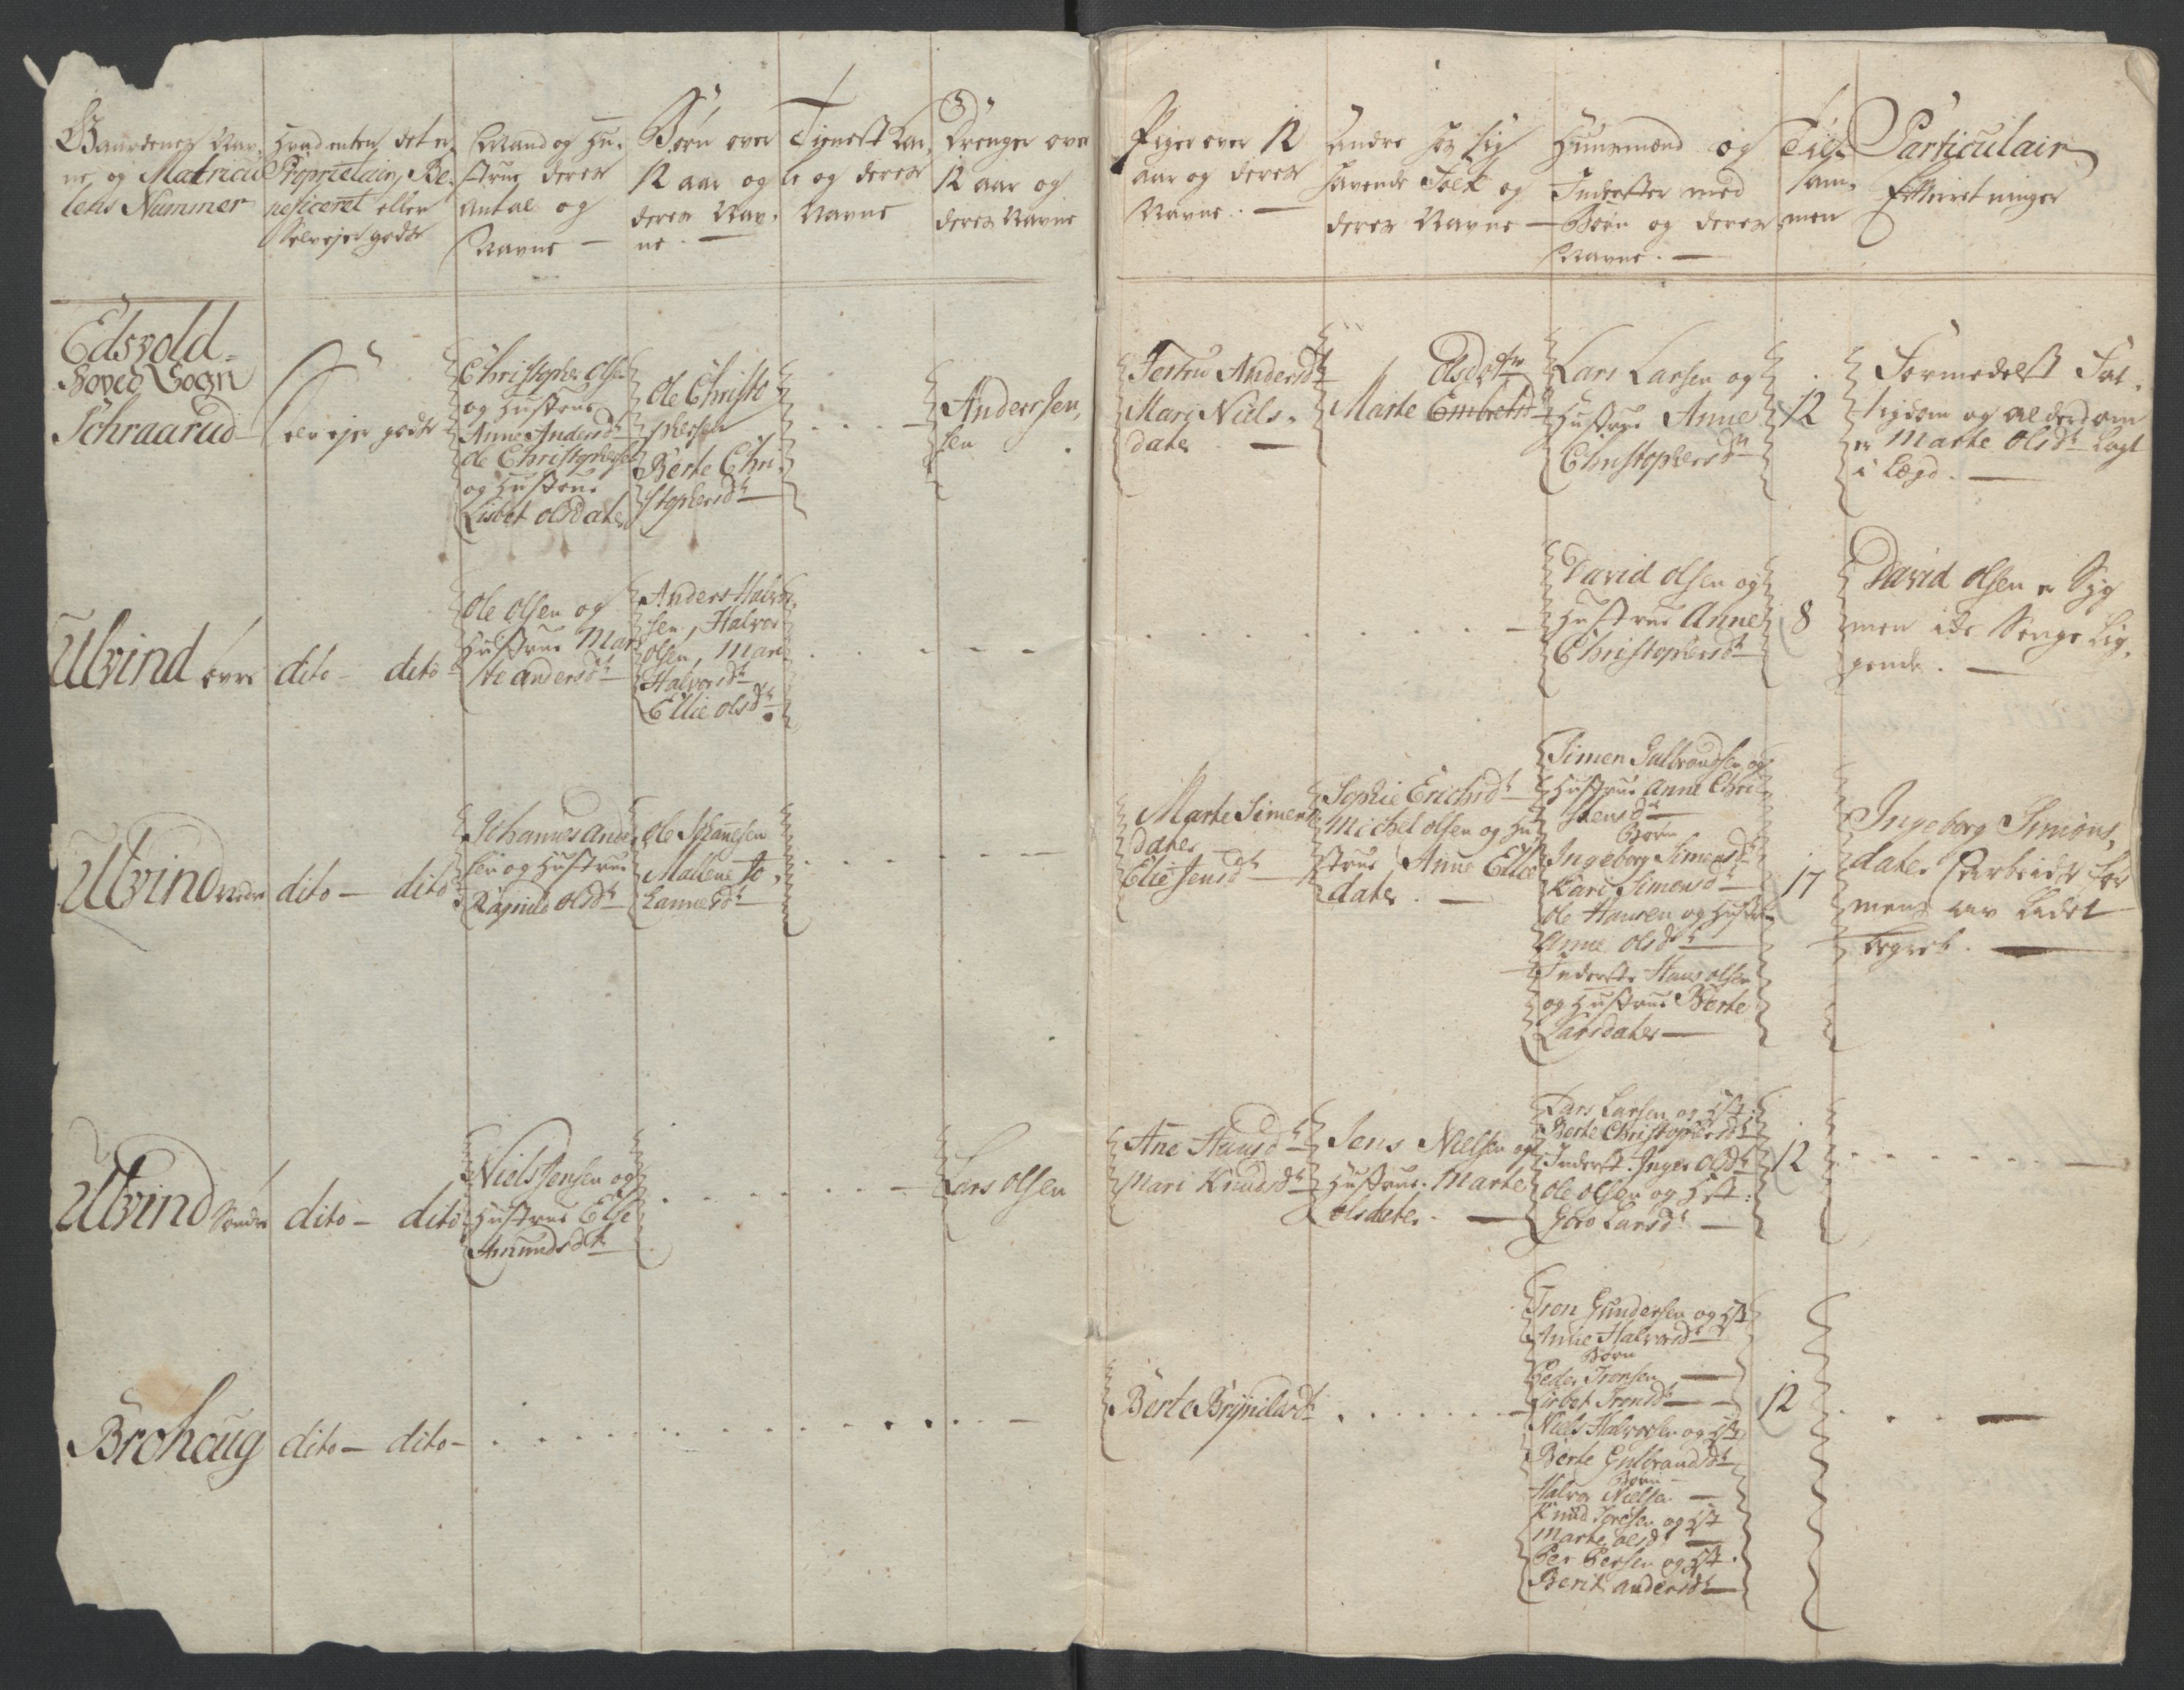 Gaardenes Nav-
ne og Matricu
lens Nummer
Hvad enten det er
Proprietair, Be-
neficeret eller
Selvejer gods
Mand og Hu-
strue deres
Antal og
Navne —
Børn over
12 aar og
deres Nav-
ne. —
Tieneste Kar-
le og deres
Navne
3
Drenger over
12 aar og
deres Navne
Piger over 12
aar og deres
Navne. —
Andre hos sig
havende Folk og
deres Navne —
Huusmænd og
Inderster med
Børn og deres
Navne. —
Till-
sam-
men
Particulair
Efterretninger
Edsvold-
Hoved Sogn
Schraarud
Selv ejer gods
Christopher Olsen
og Hustrue
Anne Andersdr
Ole Christophersen
og Hustrue
Lisbet Olsdater
Ole Christo
phersen
Berte Chri-
stophersdr
Anders Jen-
sen
Jertru Andersdr
Mari Niels-
dater —
Olsdatr
Marte Embretsd
Lars Larsen og
Hustrue Anne
Christophersdr
12
Formedelst Fat-
tigdom og alderdom
er Marte Olsdr Lagt
i Lægd. —
Ulvind øvre
dito — dito
Ole Olsen og
Hustrue Mar
te Andersdr
Anders Halvor-
sen, Halvor
Olsen, Mari
Halvorsdr
Ellie Olsdr
David Olsen og
Hustrue Anne
Christophersdr
8
David Olsen er Syg
men icke Senge Lig-
gende. —
Ulvind nedre
dito — dito
Johannes Ander
sen og Hustrue
Ragnild Olsdr
Ole Johanesen
Mallene Jo-
hannesdr
Marte Simens
dater
Elie Jensdr
Sophie Erichsdr
Michel Olsen og Hu
strue Anne Ellie
dater. —
Simen Gulbrandsen og
Hustrue Anne Chri
stensdr
Børn
Ingeborg Simensdr
Kari Simensdr
Ole Hansen og Hustrue
Anne Olsdr
Inderste Hans Olsen
og Hustrue Berte
Larsdater —
17
Ingeborg Simens-
dater

Ulvind Søndre
dito — dito
Niels Jensen og
Hustrue Else
Amundsdr
Lars Olsen
Ane Hansdr
Mari Knudsdr
Jens Nielsen og
Hustrue Marte
Olsdater. —
Lars Larsen og Hst:
Berte Christophersdr
Inderst. Inger Olsdr
Ole Olsen og Hst:
Goro Larsdr —
12
Brohaug
dito — dito —
Berte Brynildsdr
Tron Gundersen og Hst
Anne Halvorsdr
Børn
Peder Tronsen —
Lisbet Tronsdr —
Niels Halvorsen og Hst
Berte Gulbrandsdr
Børn
Halvor Nielsen —
Knud Iversen og Hst
Marte Olsdr —
Per Persen og Hst.
Berit Andersdr —
12